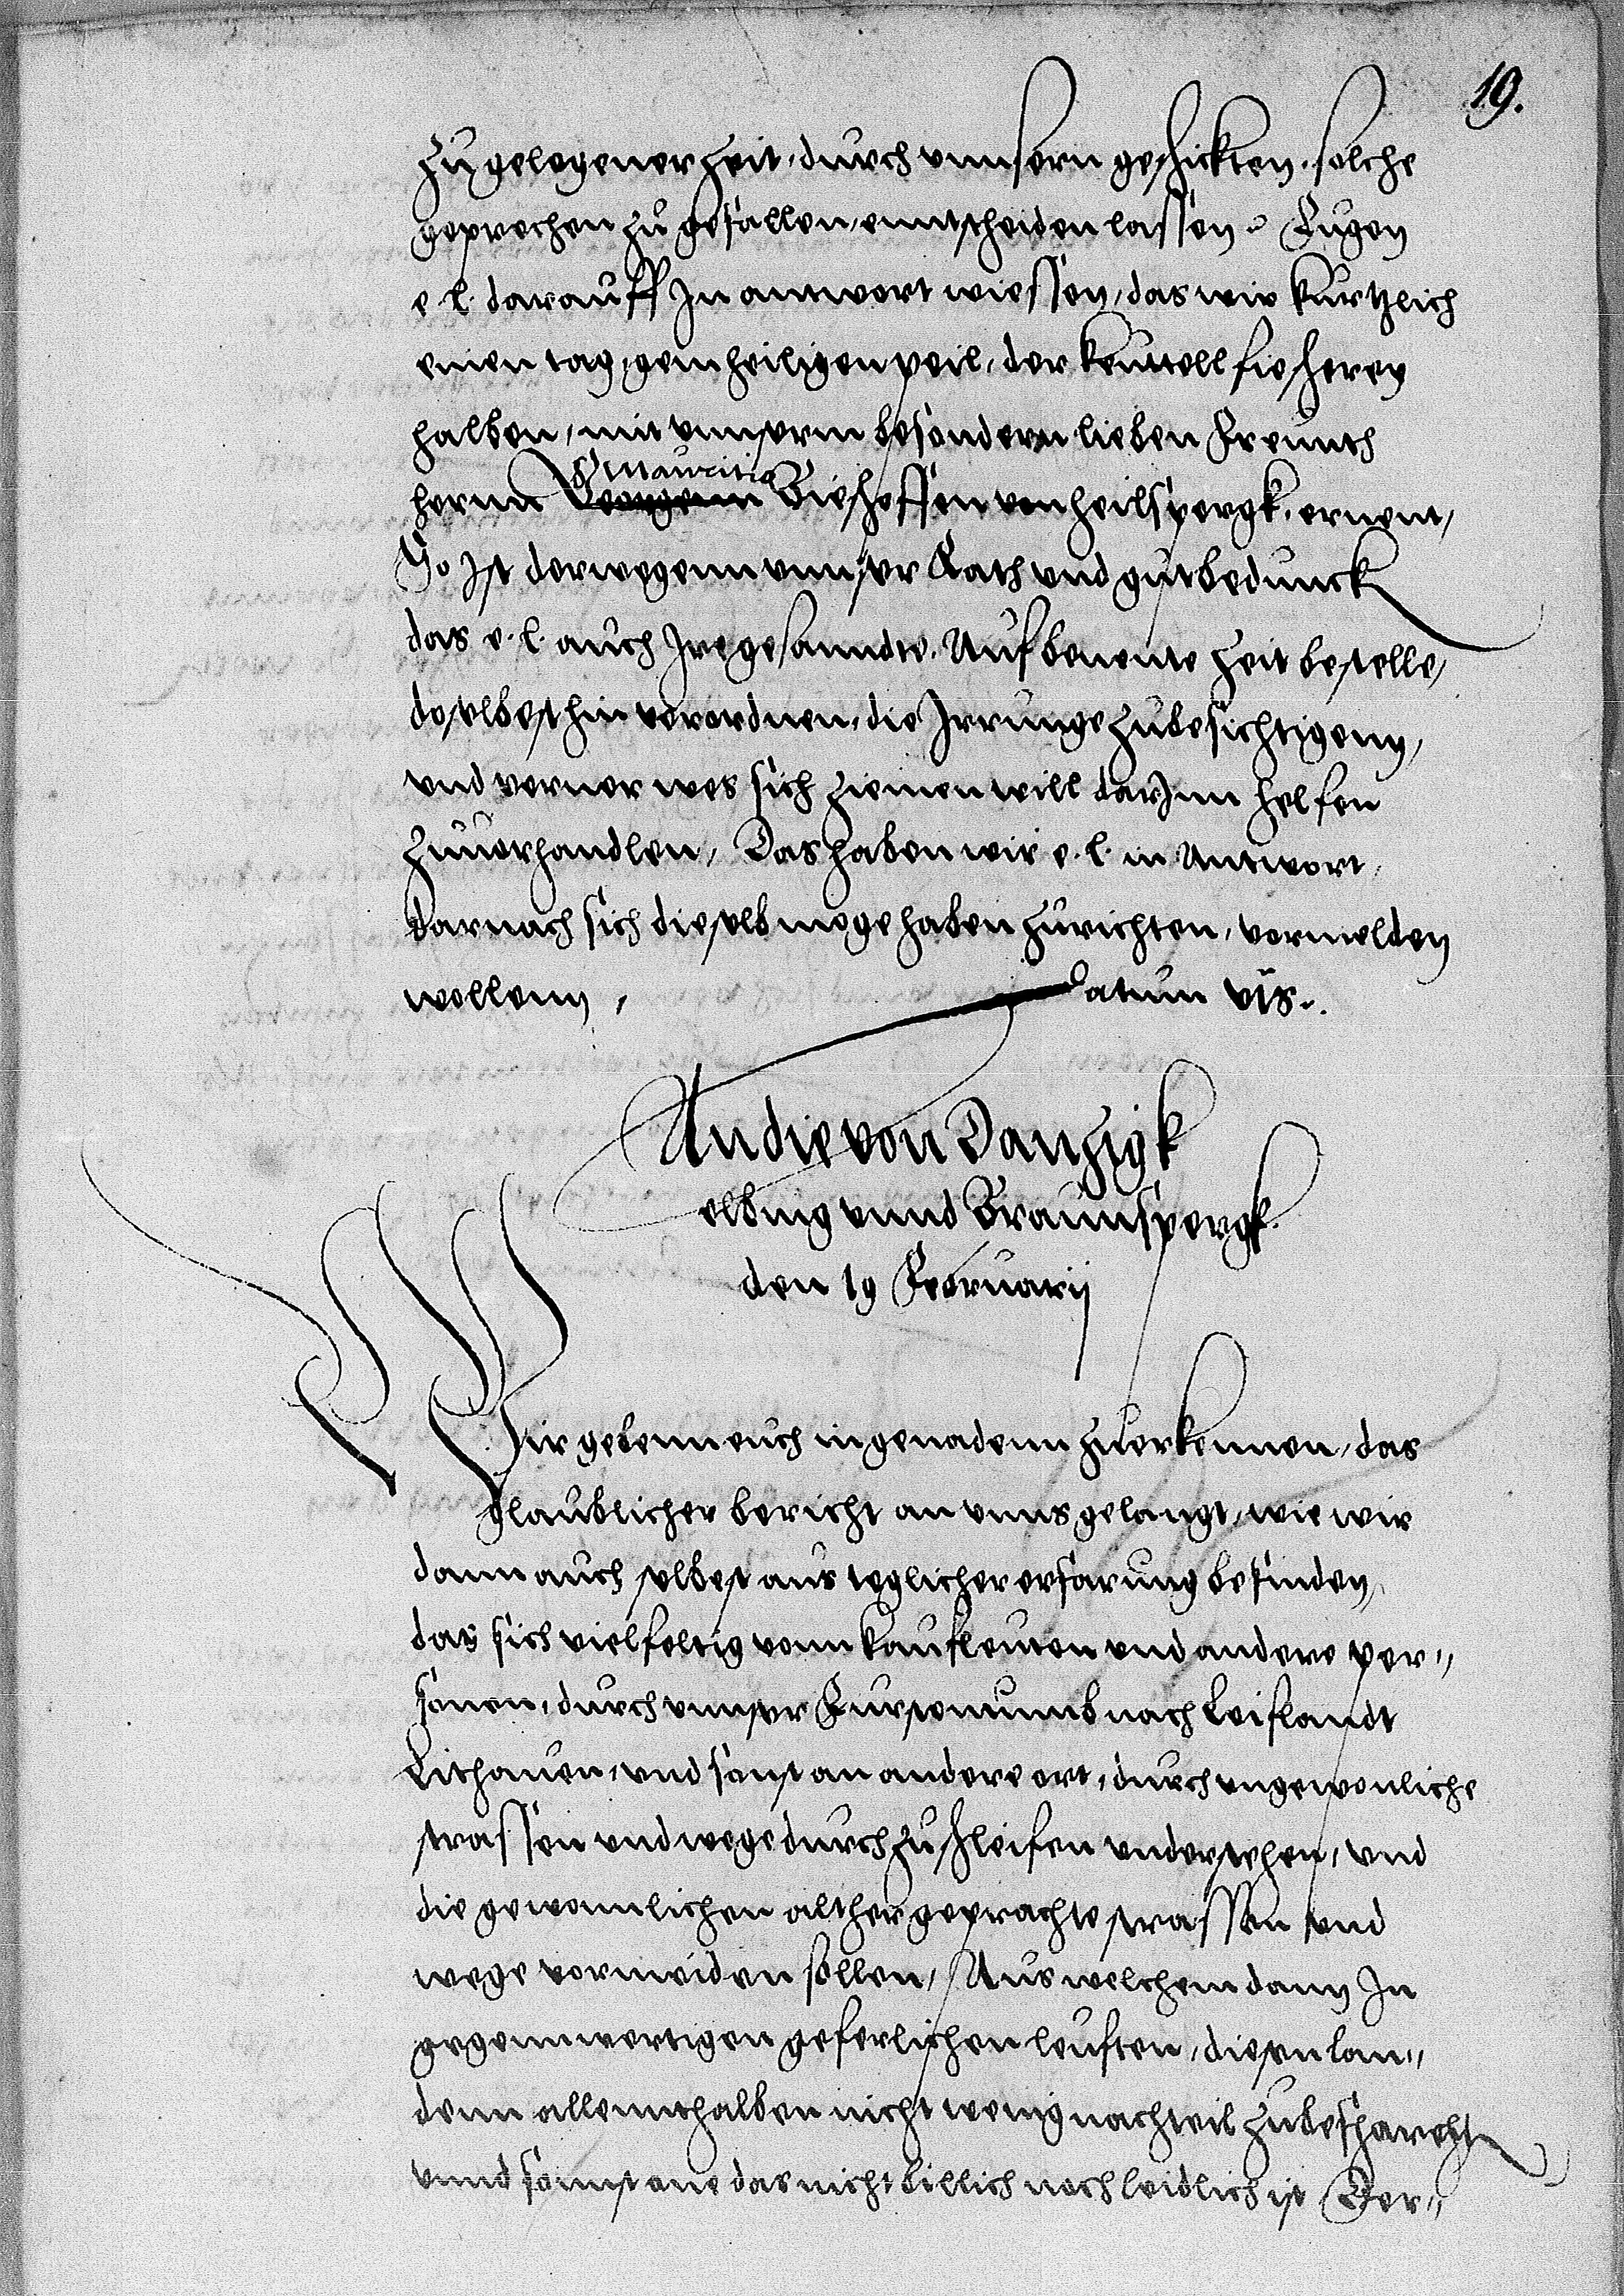 19.
zu gelegener zeit, durch unnsern geschickten, solche
geprechen zu gefallen, enntscheiden lassen, Fugen
e. l. darauff In antwort wiessen, das wir kurtzlich
einen tag, gem heiligen peil, der keuttell fischerey
halben, mit unnserm besondern lieben Freunth
Mauritio
hernn Georgenn Bieschoffen von heilspergk, ernent,
So Ist derwegenn unnser Rath und gutbedunck
das e. l. auch Ire gesanndte, Auf benente Zeit bestelle,
doselbest hin verordnen, die Irrunge zubesichtigenn,
und verner wes sich ziemen will darInn helfen
zuuorhandlen, Das haben wir e. l. in Antwort,
darnach sich dieselb moge haben zurichten, vormelden
wollenn, Datum uts.
An die von Danzigk
elbing unnd Braunspergk
den 19 Februarij
Wir gebenn euch in genadenn zuerkennen, das
glaublicher bericht an unns gelangt, wie wir
dann auch selbest aus teglicher erfarung befinden,
das sich vielfeltig vonn kaufleuten und andere per„
sonen, durch unnser Furstenthumb nach Leiflandt
Lithauen, und sonst an andere ort, durch ungewonliche
strassen und wege durchzuschleifen understehen, und
die gewonnlichen althergeprachte strassen und
wege vormeiden sollen, Aus welchem dann In
gegennwertigen geferlichen leuften, diesen lan„
denn allennthalben nicht wenig nachteil zubesharen
unnd sonnst ane das nicht billich noch leidlich ist Der„